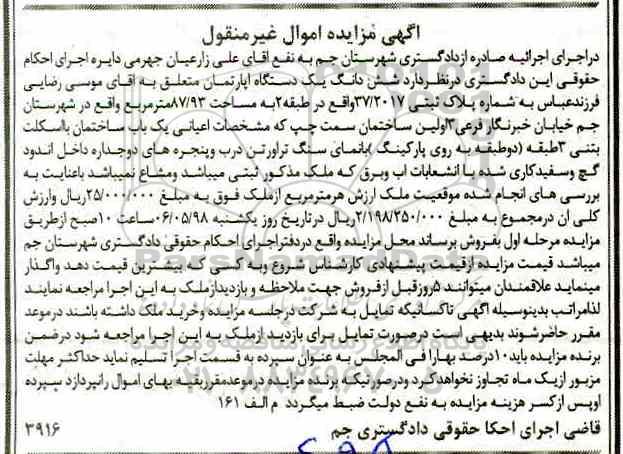 آگهی مزایده اموال غیرمنقول
دراجرای اجرائیه صادره ازدادگستری شهرستان جم به نفع اقای علی زارعیان جهرمی دایره اجرای احکام
حقوقی این دادگستری درنظردارد شش دانگ یک دستگاه اپارتمان متعلق به اقای موسی رضایی
فرزندعباس به شماره پلاک ثبتی ۳۷/۲۰۱۷واقع در طبقه۲به مساحت ۸۷/۹۳مترمربع واقع در شهرستان
جم خیابان خبرنگار فرعی۳اولین ساختمان سمت چپ که مشخصات اعیانی یک باب ساختمان بااسکلت
بتنی ۳طبقه (دوطبقه به روی پارکینگ )بانمای سنگ تراورتن درب وپنجره های دوجداره داخل اندود
گچ وسفیدکاری شده با انشعابات اب وبرق که ملک مذکور ثبتی میباشد ومشاع نمیباشد باعنایت به
بررسی های انجام شده موقعیت ملک ارزش هرمترمربع ازملک فوق به مبلغ ۲۵/۰۰۰/۰۰۰ریال وارزش
کلی ان درمجموع به مبلغ ۲/۱۹۸/۲۵۰/۰۰۰ریال درتاریخ روز یکشنبه ۰۶/۰۵/۹۸ساعت ۱۰صبح ازطریق
مزایده مرحله اول بفروش برساند محل مزایده واقع دردفتراجرای احکام حقوقی دادگستری شهرستان جم
میباشد قیمت مزایده ازقیمت پیشنهادی کارشناس شروع وبه کسی که بیشترین قیمت دهد واگذار
مینماید علاقمندان میتوانند ۵روزقبل ازفروش جهت ملاحظه و بازدیدازملک به این اجرا مراجعه نمایند
لذامراتب بدینوسیله اگهی تاکسانیکه تمایل به شرکت درجلسه مزایده وخرید ملک داشته باشند درموعد
مقرر حاضرشوند بدیهی است درصورت تمایل برای بازدید ازملک به این اجرا مراجعه شود درضمن
برنده مزایده باید۱۰درصد بهارا فی المجلس به عنوان سپرده به قسمت اجرا تسلیم نماید حداکثر مهلت
مزبور ازیک ماه تجاوز نخواهدکرد ودرصورتیکه برنده مزایده درموعدمقرربقیه بهای اموال رانپردازد سپرده
اوپس ازکسر هزینه مزایده به نفع دولت ضبط میگردد م الف ۱۶۱
قاضی اجرای احکا حقوقی دادگستری جم ۳۹۱۶
ParsNamadData